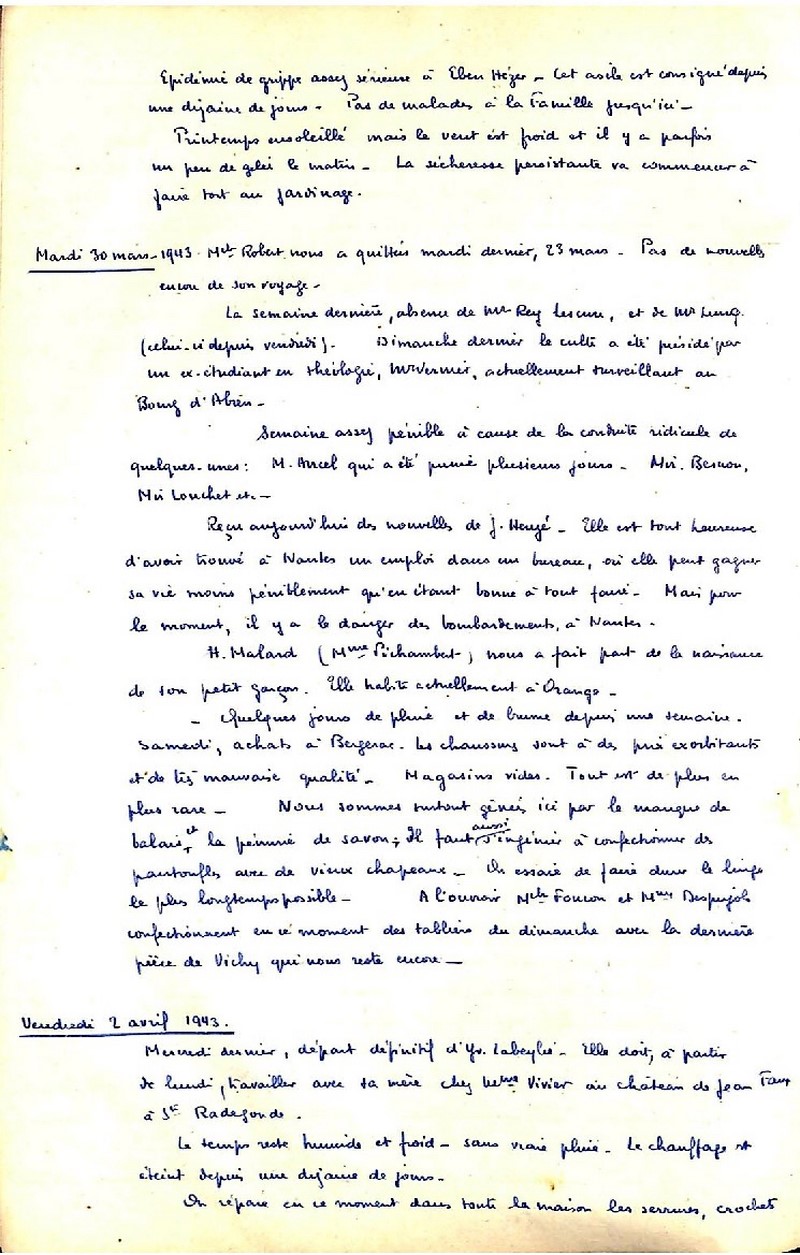 Epidémie de grippe assez sérieuse à Eben Hézer – Cet asile est consigné depuis
une dizaine de jours – Pas de malades à la Famille jusqu'ici –
Printemps ensoleillé mais le vent est froid et il y a parfois
un peu de gelée le matin – La sécheresse persistante va commencer à
faire tort au jardinage.
Mardi 30 mars – 1943. Melle Robert nous a quittés mardi dernier, 23 mars – Pas de nouvelles
encore de son voyage –
La semaine dernière, absence de Mr Rey Lescure, et de Mr
(celui-ci depuis vendredi). Dimanche dernier le culte a été présidé par
un ex-étudiant en théologie, Mr Vermier, actuellement surveillant au
Bourg d'Abren –
Semaine assez pénible à cause de la conduite ridicule de
quelques-unes : M. Ancel qui a été punie plusieurs jours –
Mir Louchet etc –
Reçu aujourd'hui des nouvelles de J. – Elle est tout heureuse
d'avoir trouvé à Nantes un emploi dans un bureau, où elle peut gagner
sa vie moins péniblement qu'en étant bonne à tout faire – Mais pour
le moment, il y a le danger des bombardements, à Nantes –
H. Malard (Mme Pichambert) nous a fait part de la naissance
de son petit garçon. Elle habite actuellement à Orange –
– Quelques jours de pluie et de brume depuis une semaine.
Samedi, achats à Bergerac. Les chaussures sont à des prix exorbitants
et de très mauvaise qualité – Magasins vides. Tout est de plus en
plus rare – Nous sommes surtout gênés ici par le manque de
balais, et la pénurie de savon ; Il faut aussi s'ingénier à confectionner des
pantoufles avec de vieux chapeaux – On essaie de faire durer le linge
le plus longtemps possible – A l'ouvroir Melle Foucon et Mme Despujols
confectionnent en ce moment des tabliers du dimanche avec la dernière
pièce de Vichy qui nous reste encore –
Vendredi 2 avril 1943.
Mercredi dernier, départ définitif d'Yv. Labeylie – Elle doit, à partir
de lundi, travailler avec sa mère chez Mme Vivier au château de Jean Faux
à Ste Radegonde.
Le temps reste humide et froid – sans vraie pluie – Le chauffage est
éteint depuis une dizaine de jours –
On répare en ce moment dans toute la maison les serrures, crochets